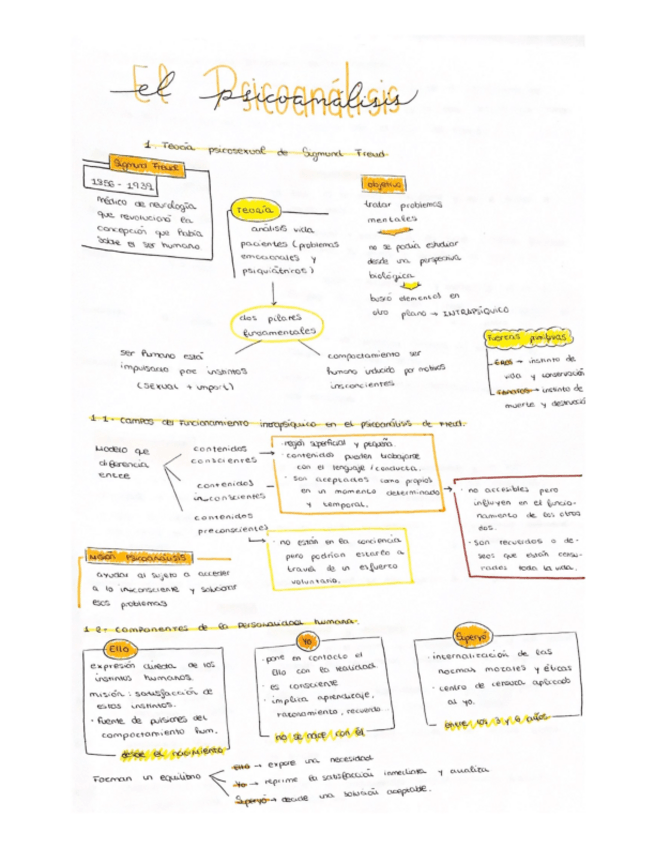 el Psicoanálisis
1. Teoría psicosexual de Sigmund Freud
Sigmund Freud
1856 - 1939
médico de neurología
que revolucionó la
concepción que había
sobre el ser humano
TEORÍA
análisis vida
pacientes (problemas
emocionales y
psiquiátricos)
objetivo
tratar problemas
mentales
no se podía estudiar
desde una perspectiva
biológica
buscó elementos en
otro plano → INTRAPSÍQUICO
dos pilares
fundamentales
ser humano está
impulsado por instintos
(SEXUAL + import.)
comportamiento ser
humano inducido por motivos
inconscientes
Fuerzas primitivas
EROS → instinto de
vida y conservación
TÁNATOS → instinto de
muerte y destrucció
1 1- Campos del funcionamiento intrapsíquico en el psicoanálisis de Freud.
Modelo que
diferencia
entre
contenidos
conscientes
contenidos
inconscientes
contenidos
preconscientes
· región superficial y pequeña
· contenidos pueden trabajarse
con el lenguaje / conducta.
· son aceptados como propios
en un momento determinado
y temporal.
· no accesibles pero
influyen en el funcio-
namiento de los otros
dos.
· son recuerdos o de-
seos que están censu-
rados toda la vida.
· no están en la conciencia
pero podrían estarlo a
través de un esfuerzo
voluntario.
MISIÓN PSICOANÁLISIS
ayudar al sujeto a acceder
a lo inconsciente y solucionar
esos problemas
1 2- Componentes de la personalidad humana.
Ello
expresión directa de los
instintos humanos.
misión: satisfacción de
estos instintos.
· fuente de pulsiones del
comportamiento hum.
desde el nacimiento
Yo
· pone en contacto el
Ello con la realidad
· es consciente
· implica aprendizaje,
razonamiento, recuerdo
no se nace con él
Superyó
· internalización de las
normas morales y éticas
· centro de censura aplicado
al yo.
entre los 3 y 6 años
Forman un equilibrio
Ello → expone una necesidad
Yo → reprime la satisfacción inmediata y analiza
Superyó → decide una solución aceptable.